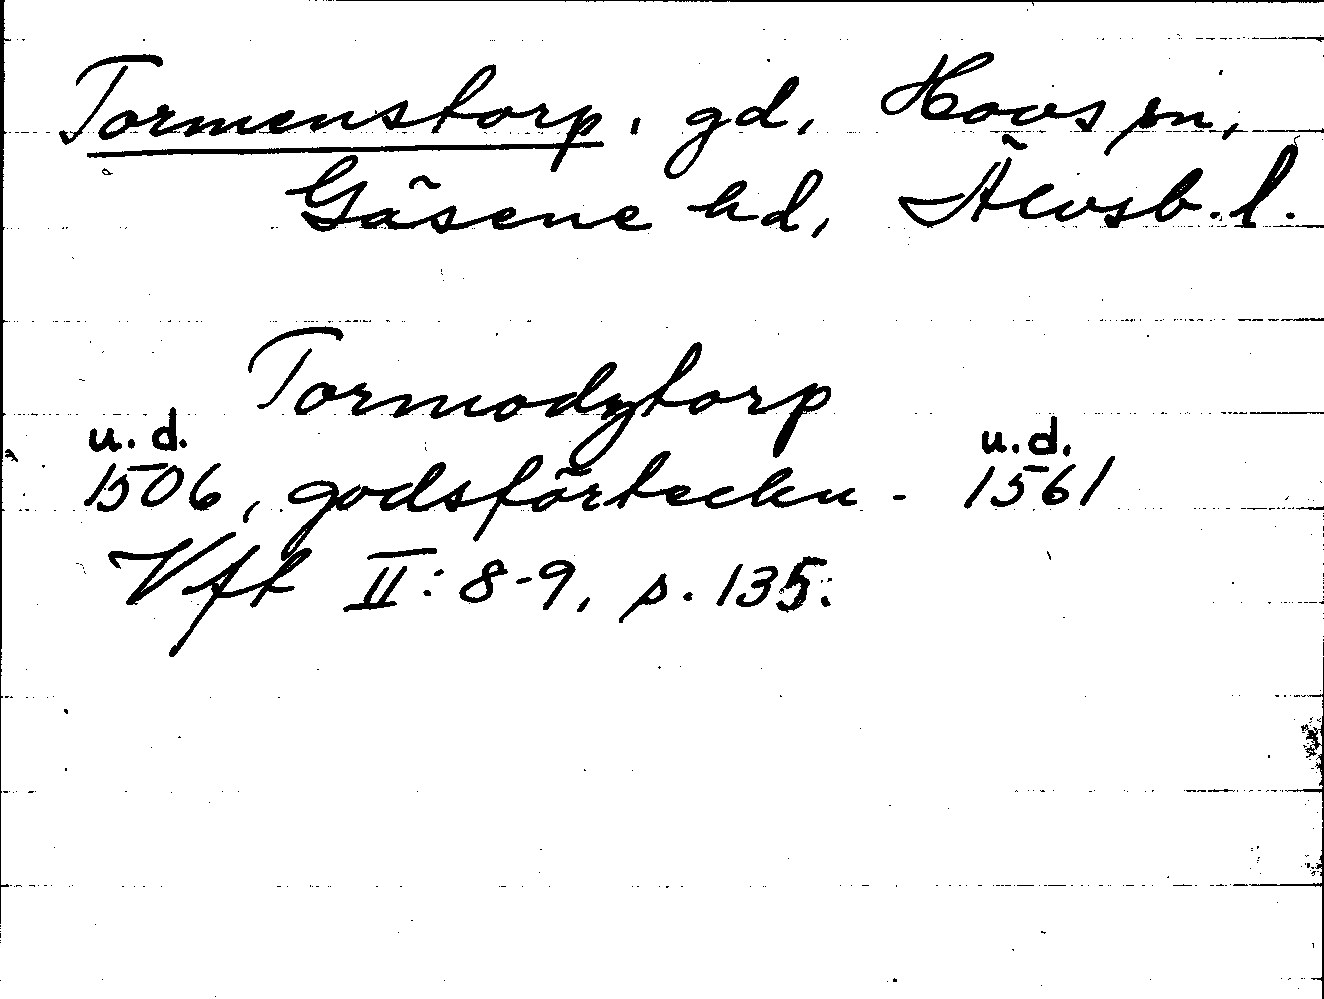 Tormenstorp, gd, Hovs sn,
Gäsene hd, Älvsb. l.
Tormodztorp
u. d. u. d.
1506, godsförteckn - 1561
Vft II: 8-9, s. 135.